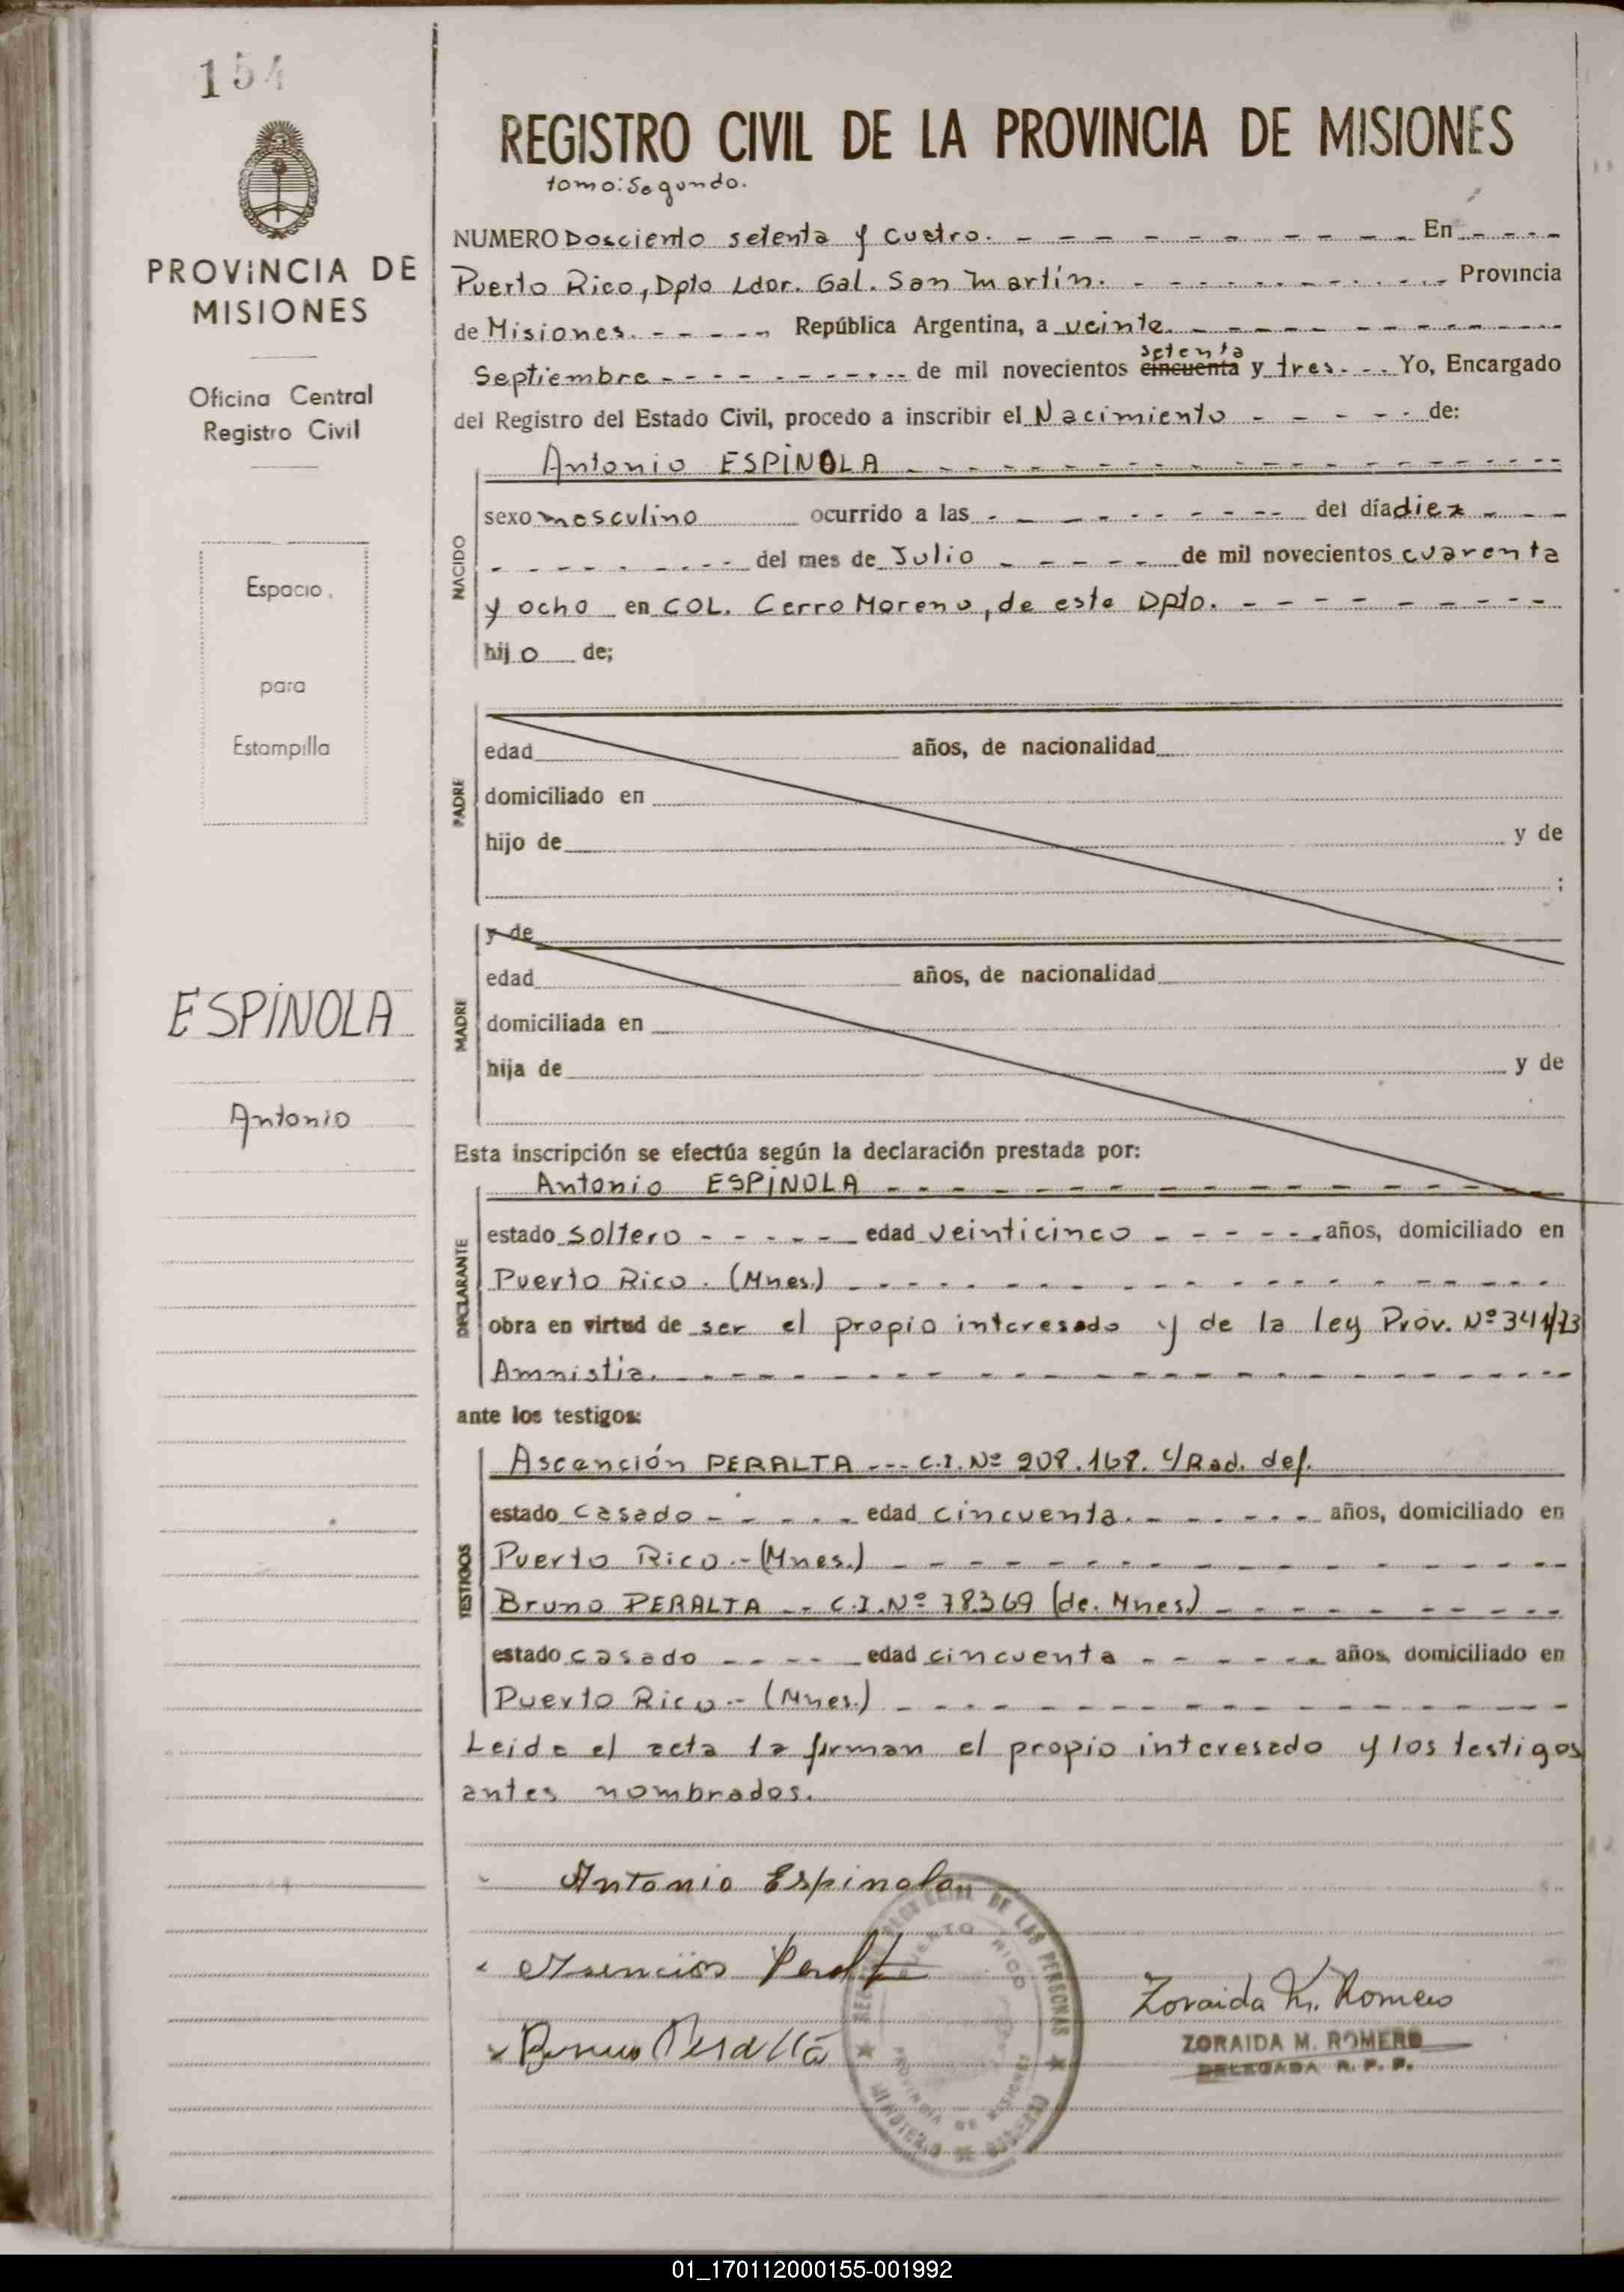 154
PROVINCIA DE
MISIONES
Oficina Central
Registro Civil
Espacio
para
Estampilla
ESPÍNOLA
Antonio
REGISTRO CIVIL DE LA PROVINCIA DE MISIONES
tomo: Segundo.
NUMERO Dosciento setenta y cuatro. En
Puerto Rico, Dpto Ldor. Gal. San Martín. Provincia
de Misiones. República Argentina, a veinte
setenta
Septiembre de mil novecientos cincuenta y tres. Yo, Encargado
del Registro del Estado Civil, procedo a inscribir el Nacimiento de:
Antonio ESPÍNOLA
NACIDO
sexo masculino ocurrido a las del día diez
del mes de Julio de mil novecientos cuarenta
y ocho en COL. Cerro Moreno, de este Dpto.
hijo de;
PADRE
edad años, de nacionalidad
domiciliado en
hijo de y de
;
MADRE
y de
edad años, de nacionalidad
domiciliada en
hija de y de
Esta inscripción se efectúa según la declaración prestada por:
Antonio ESPÍNOLA
DECLARANTE
estado soltero edad veinticinco años, domiciliado en
Puerto Rico. (Mnes.)
obra en virtud de ser el propio interesado y de la ley Prov. Nº 341/73
Amnistia.
ante los testigos:
TESTIGOS
Ascención PERALTA --- C.I. Nº 208.168. C/Rad. def.
estado casado edad cincuenta. años, domiciliado en
Puerto Rico.- (Mnes.)
Bruno PERALTA -- C.I. Nº 78.369 (de. Mnes.)
estado casado edad cincuenta años, domiciliado en
Puerto Rico.- (Mnes.)
Leida el acta la firman el propio interesado y los testigos
antes nombrados.
Antonio Espinola
Peralta
Bruno Peralta
DE LAS PERSONAS
PUERTO RICO
PROVINCIA DE MISIONES
MINISTERIO DE GOBIERNO
Zoraida M. Romero
ZORAIDA M. ROMERO
DELEGADA R. P. P.
01_170112000155-001992